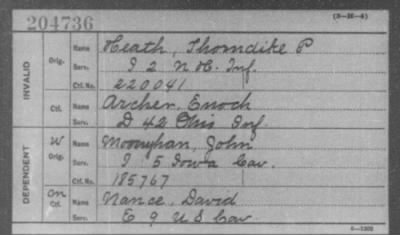 204736
(3-H-4)
INVALID
Orig.
Name Heath, Thorndike P
Serv. I 2 N.H. Inf.
Ctf. No. 220041
Ctf.
Name Archer, Enoch
Serv. D 42 Ohio Inf
DEPENDENT
W
Orig.
Name Moonyhan, John
Serv. I 5 Iowa Cav.
Ctf. No. 185767
Ctf.
Name Nance, David
Serv. E 9 U S Cav